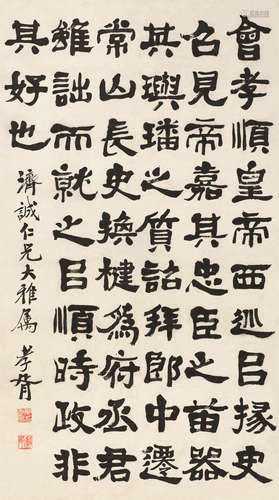 會孝順皇帝西巡㠯掾史
召見帝嘉其忠臣之苗器
其璵璠之質詔拜郎中遷
常山長史換楗為府丞君
雖詘而就之㠯順時政非
其好也
濟誠仁兄大雅属 孝胥